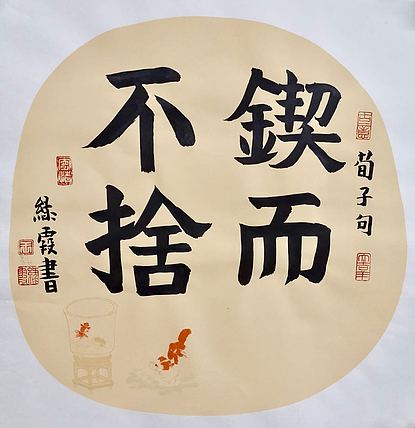 鍥而
不捨
荀子句
綵霞書